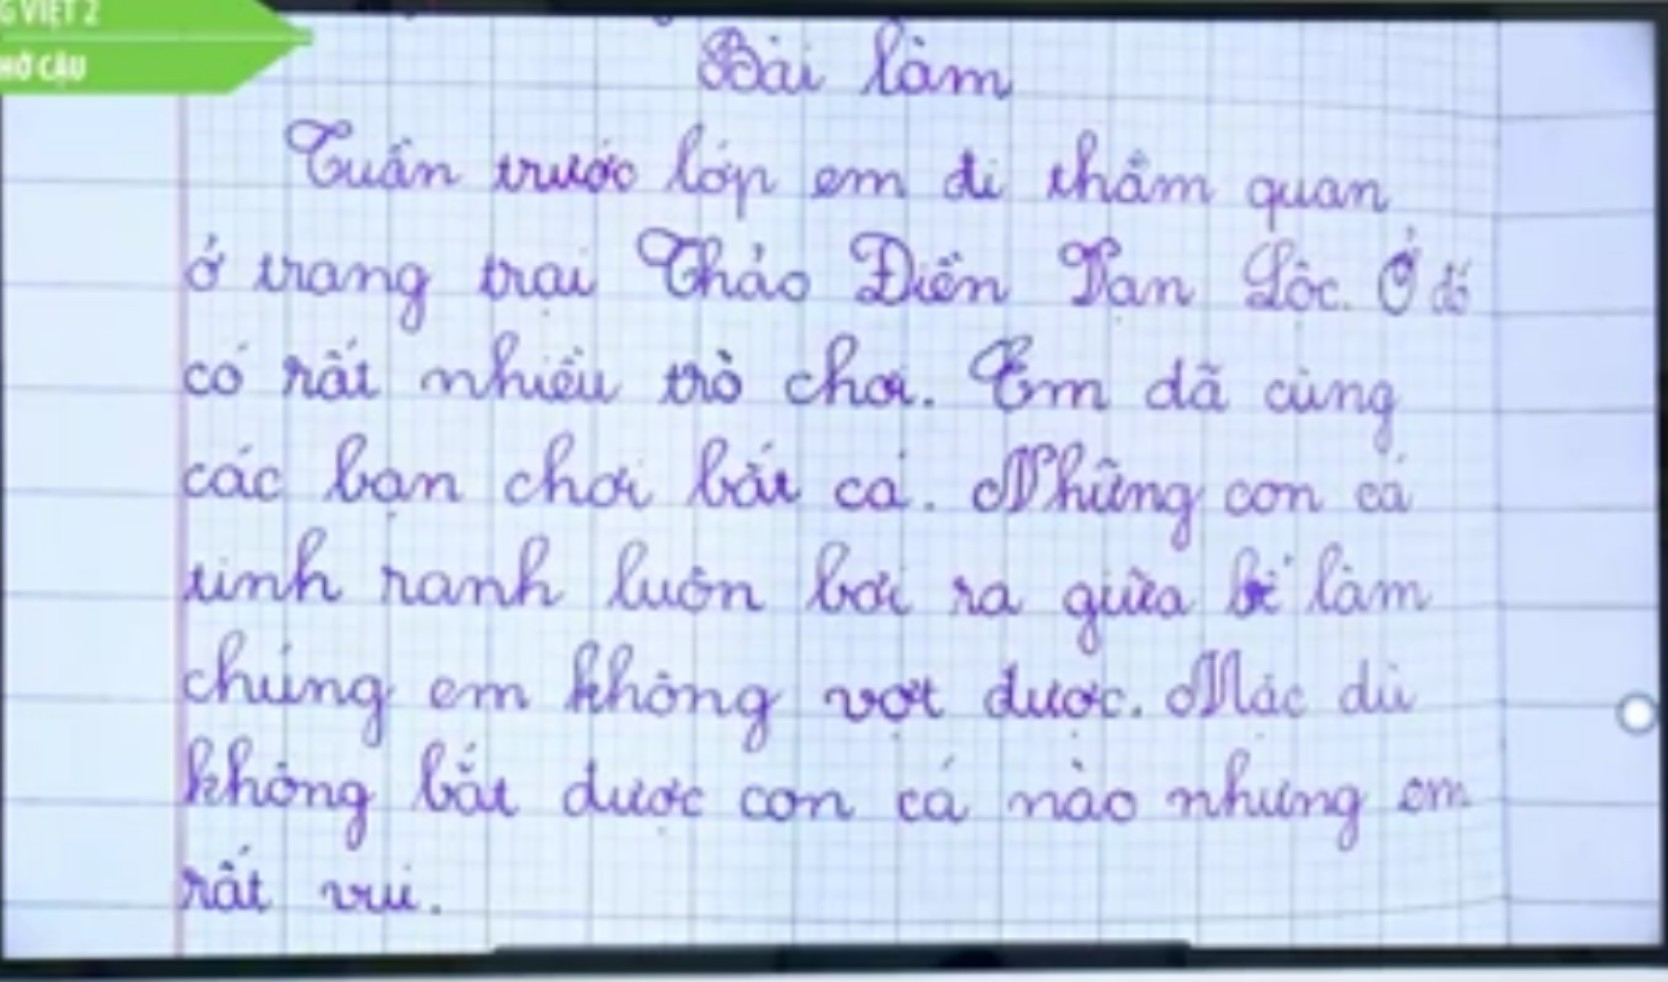 G VIỆT 2
HỜ CẬU
Bài làm
Tuần trước lớp em đi thăm quan
ở trang trại Thảo Điền Vạn Lộc. Ở đó
có rất nhiều trò chơi. Em đã cùng
các bạn chơi bắt cá. Những con cá
tinh ranh luôn bơi ra giữa bể làm
chúng em không vợt được. Mặc dù
không bắt được con cá nào nhưng em
rất vui.